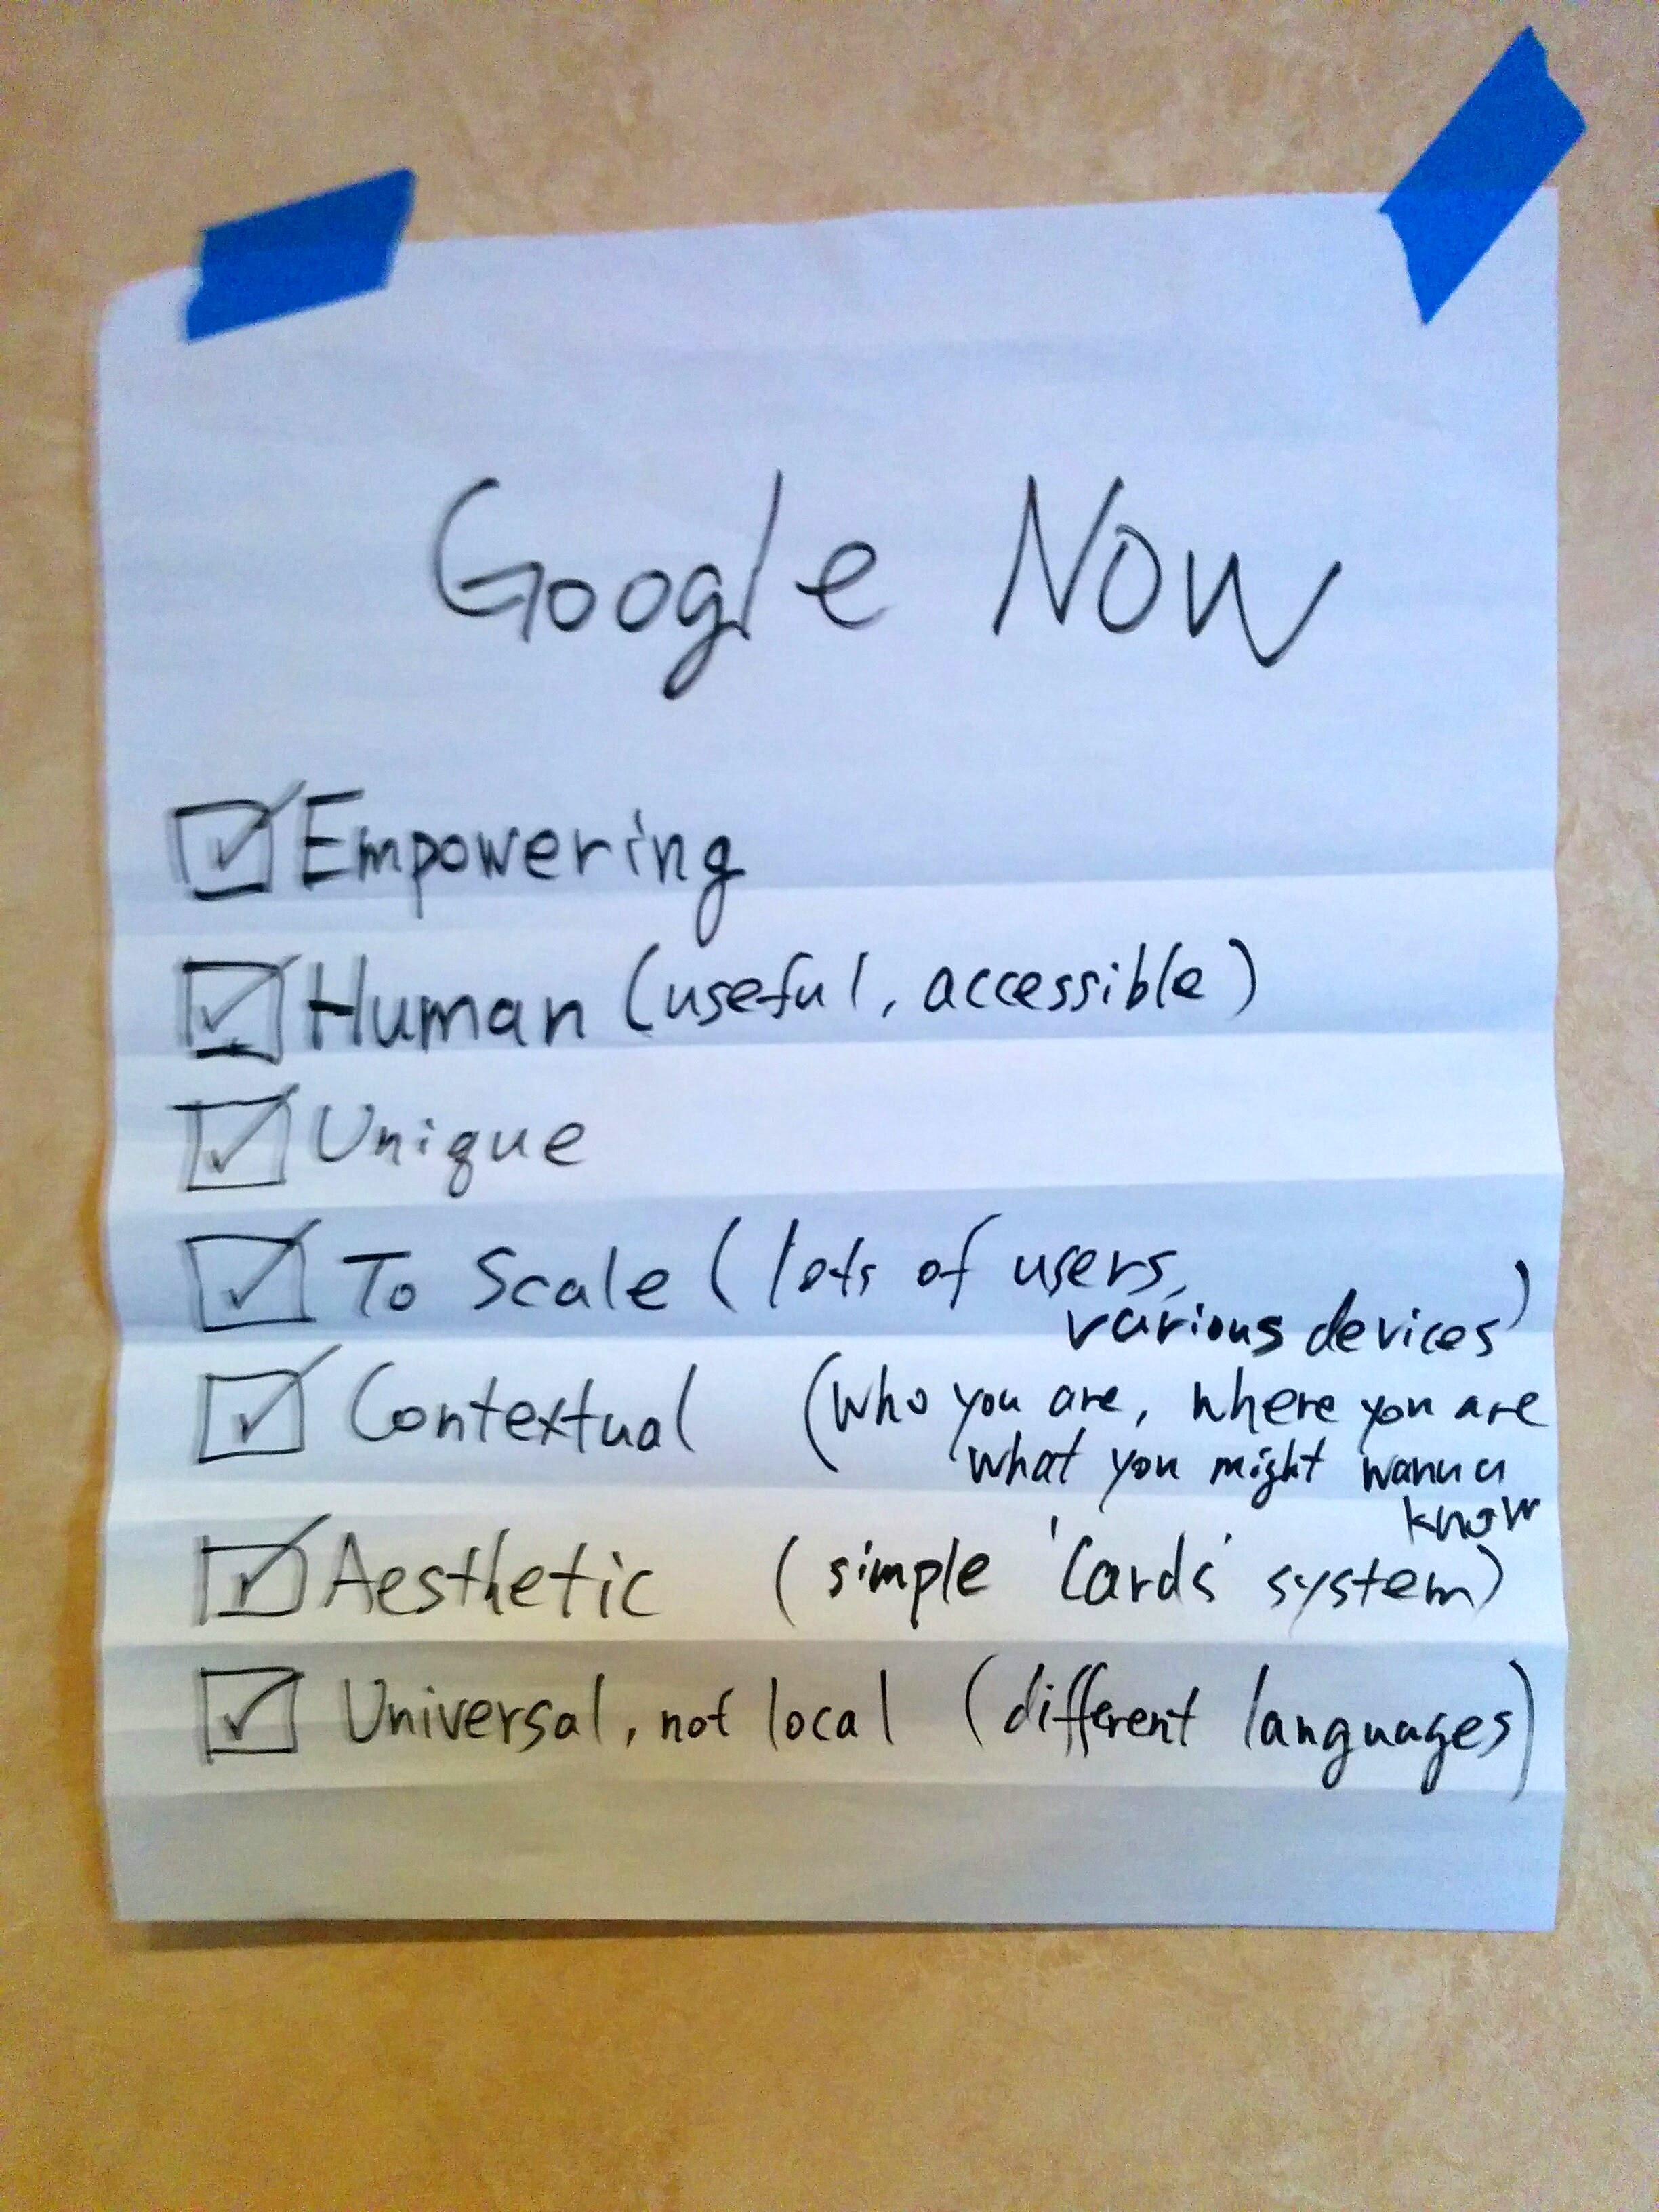 Google Now
Empowering
Human (useful, accessible)
Unique
To Scale (lots of users,
various devices)
Contextual (who you are, where you are
what you might wanna
know
Aesthetic (simple 'Cards' system)
Universal, not local (different languages)